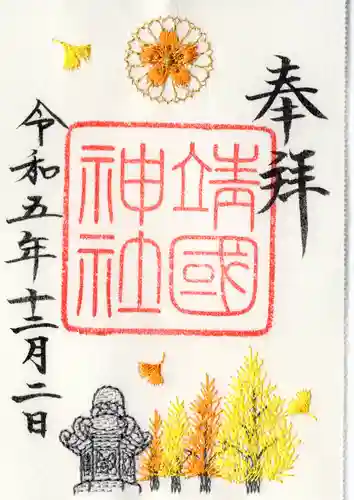 奉拝
靖國
神社
令和五年十二月二日